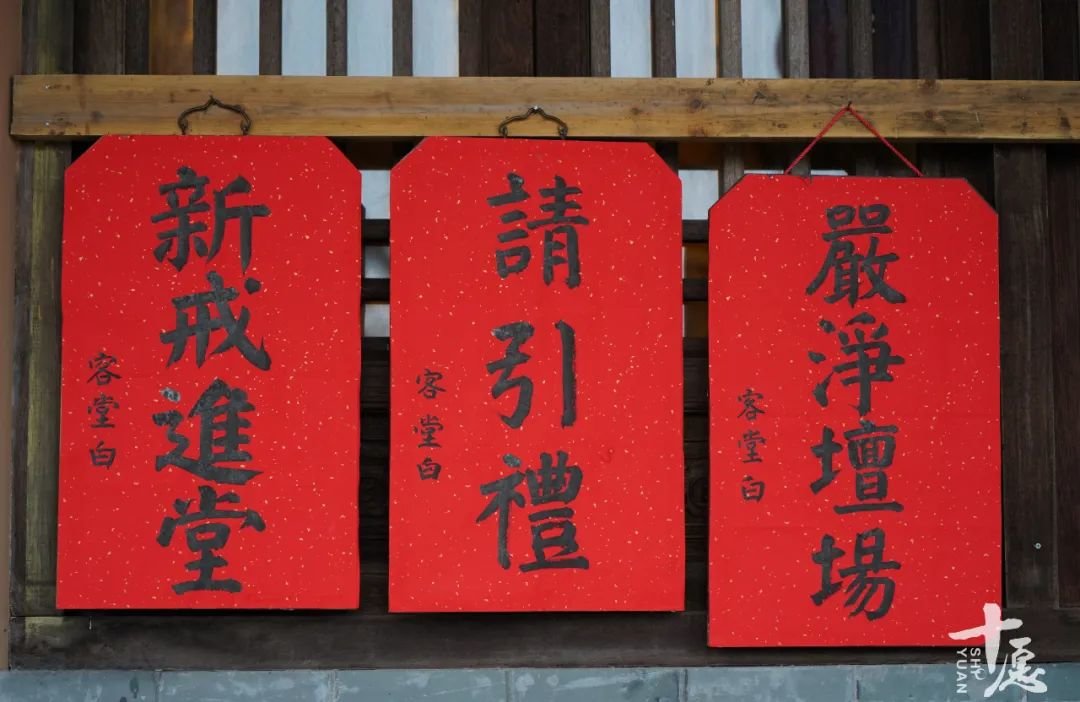 嚴淨壇場
客堂白
請引禮
客堂白
新戒進堂
客堂白
十愿
SHI YUAN